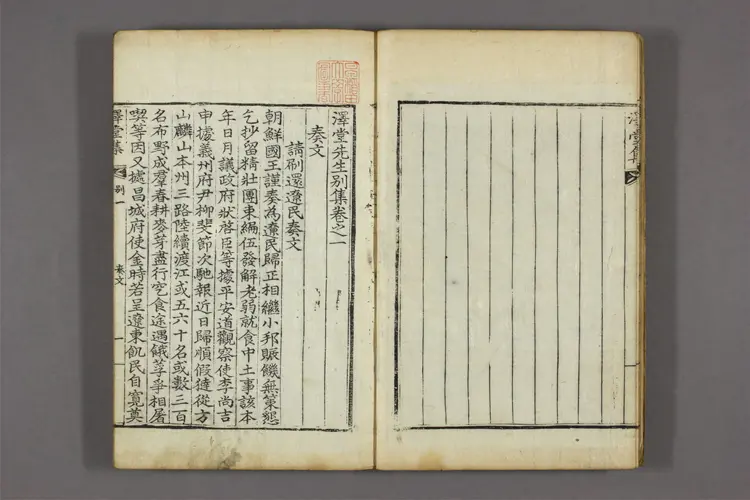 澤堂先生別集卷之一
奏文
請刷還遼民奏文
朝鮮國王謹奏為遼民歸正相繼小邦賑饑無策懇
乞抄留精壯團束編伍發解老弱就食中土事該本
年日月議政府狀啓臣等據平安道觀察使李尚吉
申據義州府尹柳斐節次馳報近日歸順假㺚從方
山麟山本州三路陸續渡江或五六十名或數三百
名布野成羣春耕麥芽盡行空食途遇餓莩爭相屠
喫等因又據昌城府使金時若呈遼東飢民自寬奠
澤堂集
別一
奏文
一
澤堂集